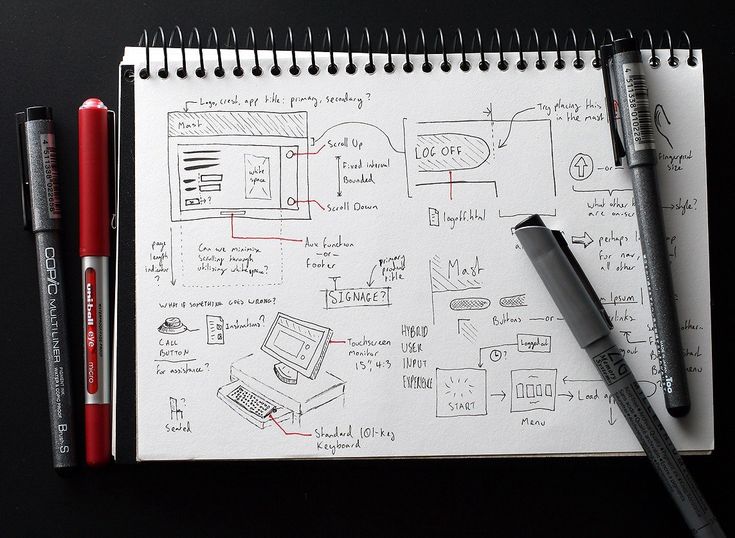 Logo, crest, app title: primary, secondary?
Mast
Scroll Up
white
space
Fixed interval
Bounded
Scroll Down
Aux Function
—or—
Footer
page
length
indicator
?
Can we minimise
Scrolling through
utilising whitespace?
Try placing this
in the mast
LOG OFF
logoff.html
Fingerprint
size
—or—
what other
are on-scr
style?
perhaps
For nav,
all other
primary
product
title
SIGNAGE?
Mast
Buttons —or—
WHAT IF SOMETHING GOES WRONG?
CALL
BUTTON
For assistance?
Instructions?
Seated
Touchscreen
monitor
15", 4:3
Standard 101-Key
Keyboard
HYBRID
USER
INPUT
EXPERIENCE
Logged out
?
START
Menu
Load app
Ipsum
Start
Menu
COPIC
MULTILINER
PIGMENT INK
WATER & COPIC PROOF
BrushS
4511338002056
uni-ball
eye
micro
4511338010228